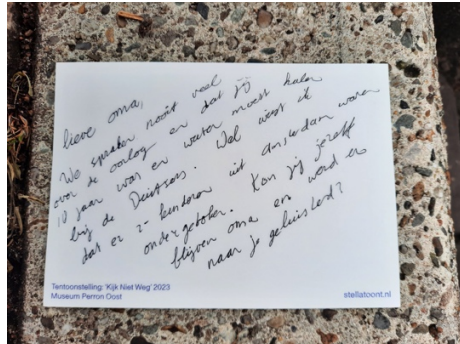 lieve oma,
We spraken nooit veel
over de oorlog en dat jij
10 jaar was en water moest halen
bij de Duitsers. Wel wist ik
dat er 2 kinderen uit Amsterdam waren
ondergedoken. Kon jij jezelf
blijven oma en werd er
naar je geluisterd?
Tentoonstelling: 'Kijk Niet Weg' 2023
Museum Perron Oost
stellatoont.nl